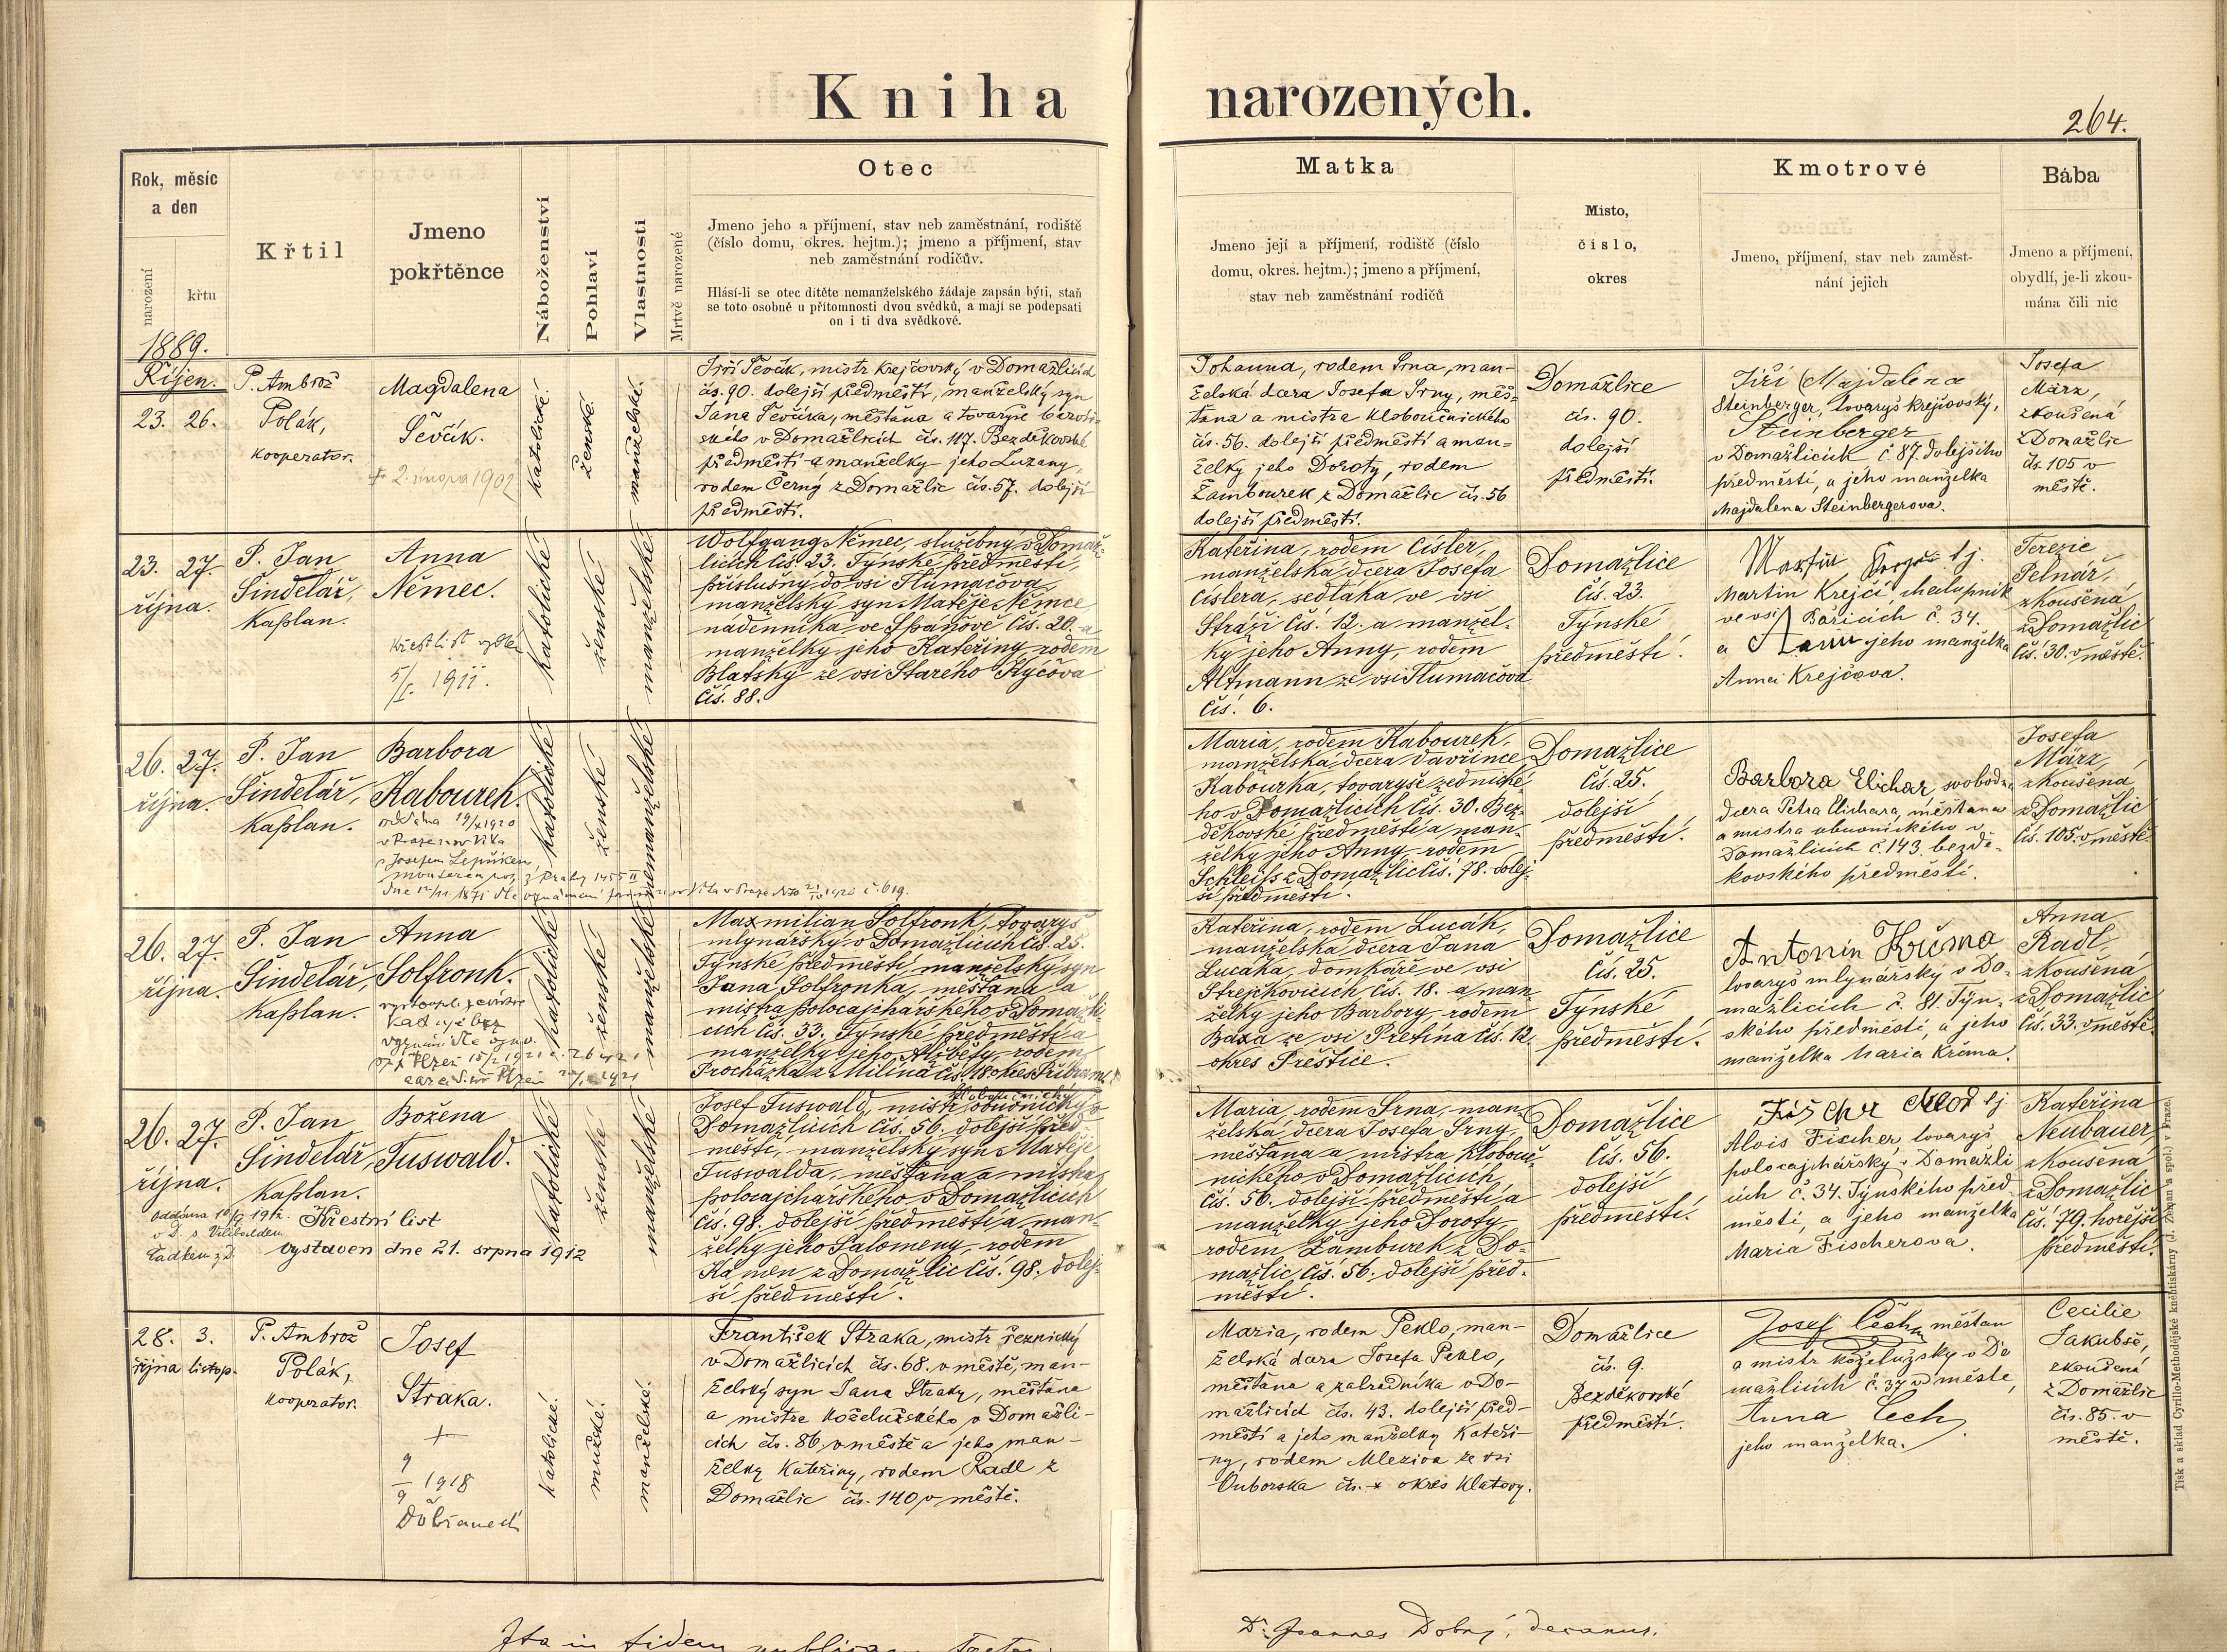 Kniha narozených.
264.
Rok, měsíc
a den
narození
křtu
Křtil
Jmeno
pokřtěnce
Náboženství
Pohlaví
Vlastnosti
Mrtvě narozené
Otec
Jmeno jeho a příjmení, stav neb zaměstnání, rodiště
(číslo domu, okres. hejtm.); jmeno a příjmení, stav
neb zaměstnání rodičův.
Hlásí-li se otec dítěte nemanželského žádaje zapsán býti, staň
se toto osobně u přítomnosti dvou svědků, a mají se podepsati
on i ti dva svědkové.
Matka
Jmeno její a příjmení, rodiště (číslo
domu, okres. hejtm.); jmeno a příjmení,
stav neb zaměstnání rodičů
Místo,
číslo,
okres
Kmotrové
Jmeno, příjmení, stav neb zaměst-
nání jejich
Bába
Jmeno a příjmení,
obydlí, je-li zkou-
mána čili nic
1889.
Říjen.
23. 26.
P. Ambrož
Polák,
kooperator.
Magdalena
Ševčík.
2. února 1902
katolické.
ženské.
manželské.
Jiří Ševčík, mistr krejčovský v Domažlicích
čís. 90. dolejší předměstí, manželský syn
Jana Ševčíka, měštana a tovaryše
v Domažlicích čís. 117. Bezděkovské
předměstí a manželky jeho Zuzany,
rodem Černý z Domažlic čís. 57. dolejší
předměstí.
Johanna, rodem Srna, man-
želská dcera Josefa Srny, měš-
tana a mistra kloboučnického
čís. 56. dolejší předměstí a man-
želky jeho Doroty, rodem
Žambourek z Domažlic čís. 56
dolejší předměstí.
Domažlice
čís. 90.
dolejší
předměstí.
Jiří Majdalena
Steinberger, tovaryš krejčovský,
Steinberger
v Domažlicích č 87. dolejšího
předměstí, a jeho manželka
Majdalena Steinbergerova.
Josefa
März,
zkoušená
z Domažlic
čís. 105 v
městě.
23. 27.
října.
P. Jan
Šindelář,
kaplan.
Anna
Němec.
Křest. list vydán
5/I. 1911.
katolické
ženské
manželské
Wolfgang Němec, služebný v Domaž-
licích čís. 23. Týnské předměstí,
příslušný do vsi Tlumačova,
manželský syn Matěje Němce
nádenníka ve Spáňově čís. 20. a
manželky jeho Kateřiny, rodem
Blatský ze vsi Starého Kýčova
čís. 88.
Kateřina, rodem Císler,
manželská dcera Josefa
Císlera, sedláka ve vsi
Stráži čís. 12. a manžel-
ky jeho Anny, rodem
Altmann ze vsi Tlumačova
čís. 6.
Domažlice
čís. 23.
Týnské
předměstí.
Martin tj
Martin Krejčí chalupník
ve vsi Pařicích č. 34.
a jeho manželka
Anna Krejčova.
Terezie
Pelnář,
zkoušená
z Domažlic
čís. 30. v městě.
26. 27.
října.
P. Jan
Šindelář,
kaplan.
Barbora
Kabourek.
oddána 19/X 1920
v Praze u sv Víta
s Josefem
katolické
ženské
nemanželské
Maria, rodem Kabourek,
manželská dcera Vavřince
Kabourka, tovaryše zednické-
ho v Domažlicích čís. 30. Bez-
děkovské předměstí a man-
želky jeho Anny, rodem
Schleiss z Domažlic čís. 78. dolej-
ší předměstí.
Domažlice
čís. 25.
dolejší
předměstí.
Barbora Elichar svobodná
dcera Petra Elichara, měštana
a mistra obuvnického v
Domažlicích č. 143 bezdě-
kovského předměstí.
Josefa
März,
zkoušená
z Domažlic
čís. 105. v městě.
26. 27.
října.
P. Jan
Šindelář,
kaplan.
Anna
Solfronk.
vystoupila z církve
bez
vyznání
katolické
ženské
manželské
Maxmilian Solfronk, tovaryš
mlynářský v Domažlicích čís. 25.
Týnské předměstí, manželský syn
Jana Solfronka, měštana a
mistra polocajchářského v Domažli-
cích čís. 33. Týnské předměstí a
manželky jeho Alžběty, rodem
Procházka z Milína čís. 18. okres Příbram.
Kateřina, rodem Lucák,
manželská dcera Jana
Lucáka, domkáře ve vsi
Strejčkovicích čís. 18. a man-
želky jeho Barbory, rodem
Baxa ze vsi Přetína čís. 12.
okres Přeštice.
Domažlice
čís. 25.
Týnské
předměstí.
Antonín Kříma
tovaryš mlynářsky v Do-
mažlicích č. 81. Týn-
ského předměstí, a jeho
manželka Maria Kříma.
Anna
Radl,
zkoušená
z Domažlic
čís. 33. v městě.
26. 27.
října.
P. Jan
Šindelář,
kaplan.
Božena
Tuswald.
Křestní list
vystaven dne 21. srpna 1912
katolické
ženské
manželské
Josef Tuswald, mistr kloboučnický v
Domažlicích čís. 56. dolejší před-
městí, manželský syn Matěje
Tuswalda, měštana a mistra
polocajchářského v Domažlicích
čís. 98. dolejší předměstí a man-
želky jeho Salomeny, rodem
Kámen z Domažlic čís. 98. dolej-
ší předměstí.
Maria, rodem Srna, man-
želská dcera Josefa Srny,
měštana a mistra klobouč-
nického v Domažlicích
čís. 56. dolejší předměstí a
manželky jeho Doroty,
rodem Žamburek z Do-
mažlic čís. 56. dolejší před-
městí.
Domažlice
čís. 56.
dolejší
předměstí.
Fischer tj
Alois Fischer, tovaryš
polocajchářský v Domažli
cích č. 34. Týnského před-
městí, a jeho manželka
Maria Fischerova.
Kateřina
Neubauer,
zkoušená
z Domažlic
čís. 79. hořejší
předměstí.
28. 3.
října listop.
P. Ambrož
Polák,
kooperator.
Josef
Straka.
+
9/9 1918
katolické.
mužské.
manželské.
František Straka, mistr řeznický
v Domažlicích čís. 68. v městě, man-
želský syn Jana Straky, měštana
a mistra koželužského v Domažli-
cích čís. 86. v městě a jeho man-
želky Kateřiny, rodem Radl z
Domažlic čís. 140 v městě.
Maria, rodem Peklo, man-
želská dcera Josefa Pekla,
měštana a zahradníka v Do-
mažlicích čís. 43. dolejší před-
městí a jeho manželky Kateři-
ny, rodem Mleziva ze vsi
Ouborska čís. * okres Klatovy.
Domažlice
čís. 9.
Bezděkovské
předměstí.
Josef Čech, měštan
a mistr koželužsky v Do
mažlicích č. 37 v městě,
Anna Čech,
jeho manželka.
Cecilie
Jakubsě,
zkoušená
z Domažlic
čís. 85. v
městě.
Tisk a sklad Cyrillo-Methodějské knihtiskárny (J. Zeman a spol.) v Praze.
Ita in fidem
Dr. Joannes Dobrý, decanus.